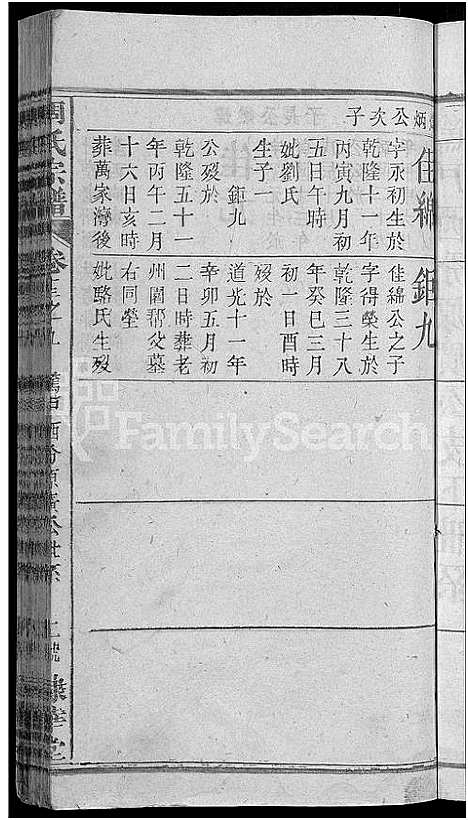 炳公次子
佳綿
字永初生於
乾隆十一年
丙寅九月初
五日午時
妣劉氏
生子一
鉅九
公歿於
乾隆五十一
年丙午二月
十六日亥時
葬萬家灣後
鉅九
佳綿公之子
字得榮生於
乾隆三十八
年癸巳三月
初一日酉時
歿於
道光十一年
辛卯五月初
二日時葬老
州圍帮父墓
右同塋
妣駱氏生歿
周氏宗譜
FamilySearch